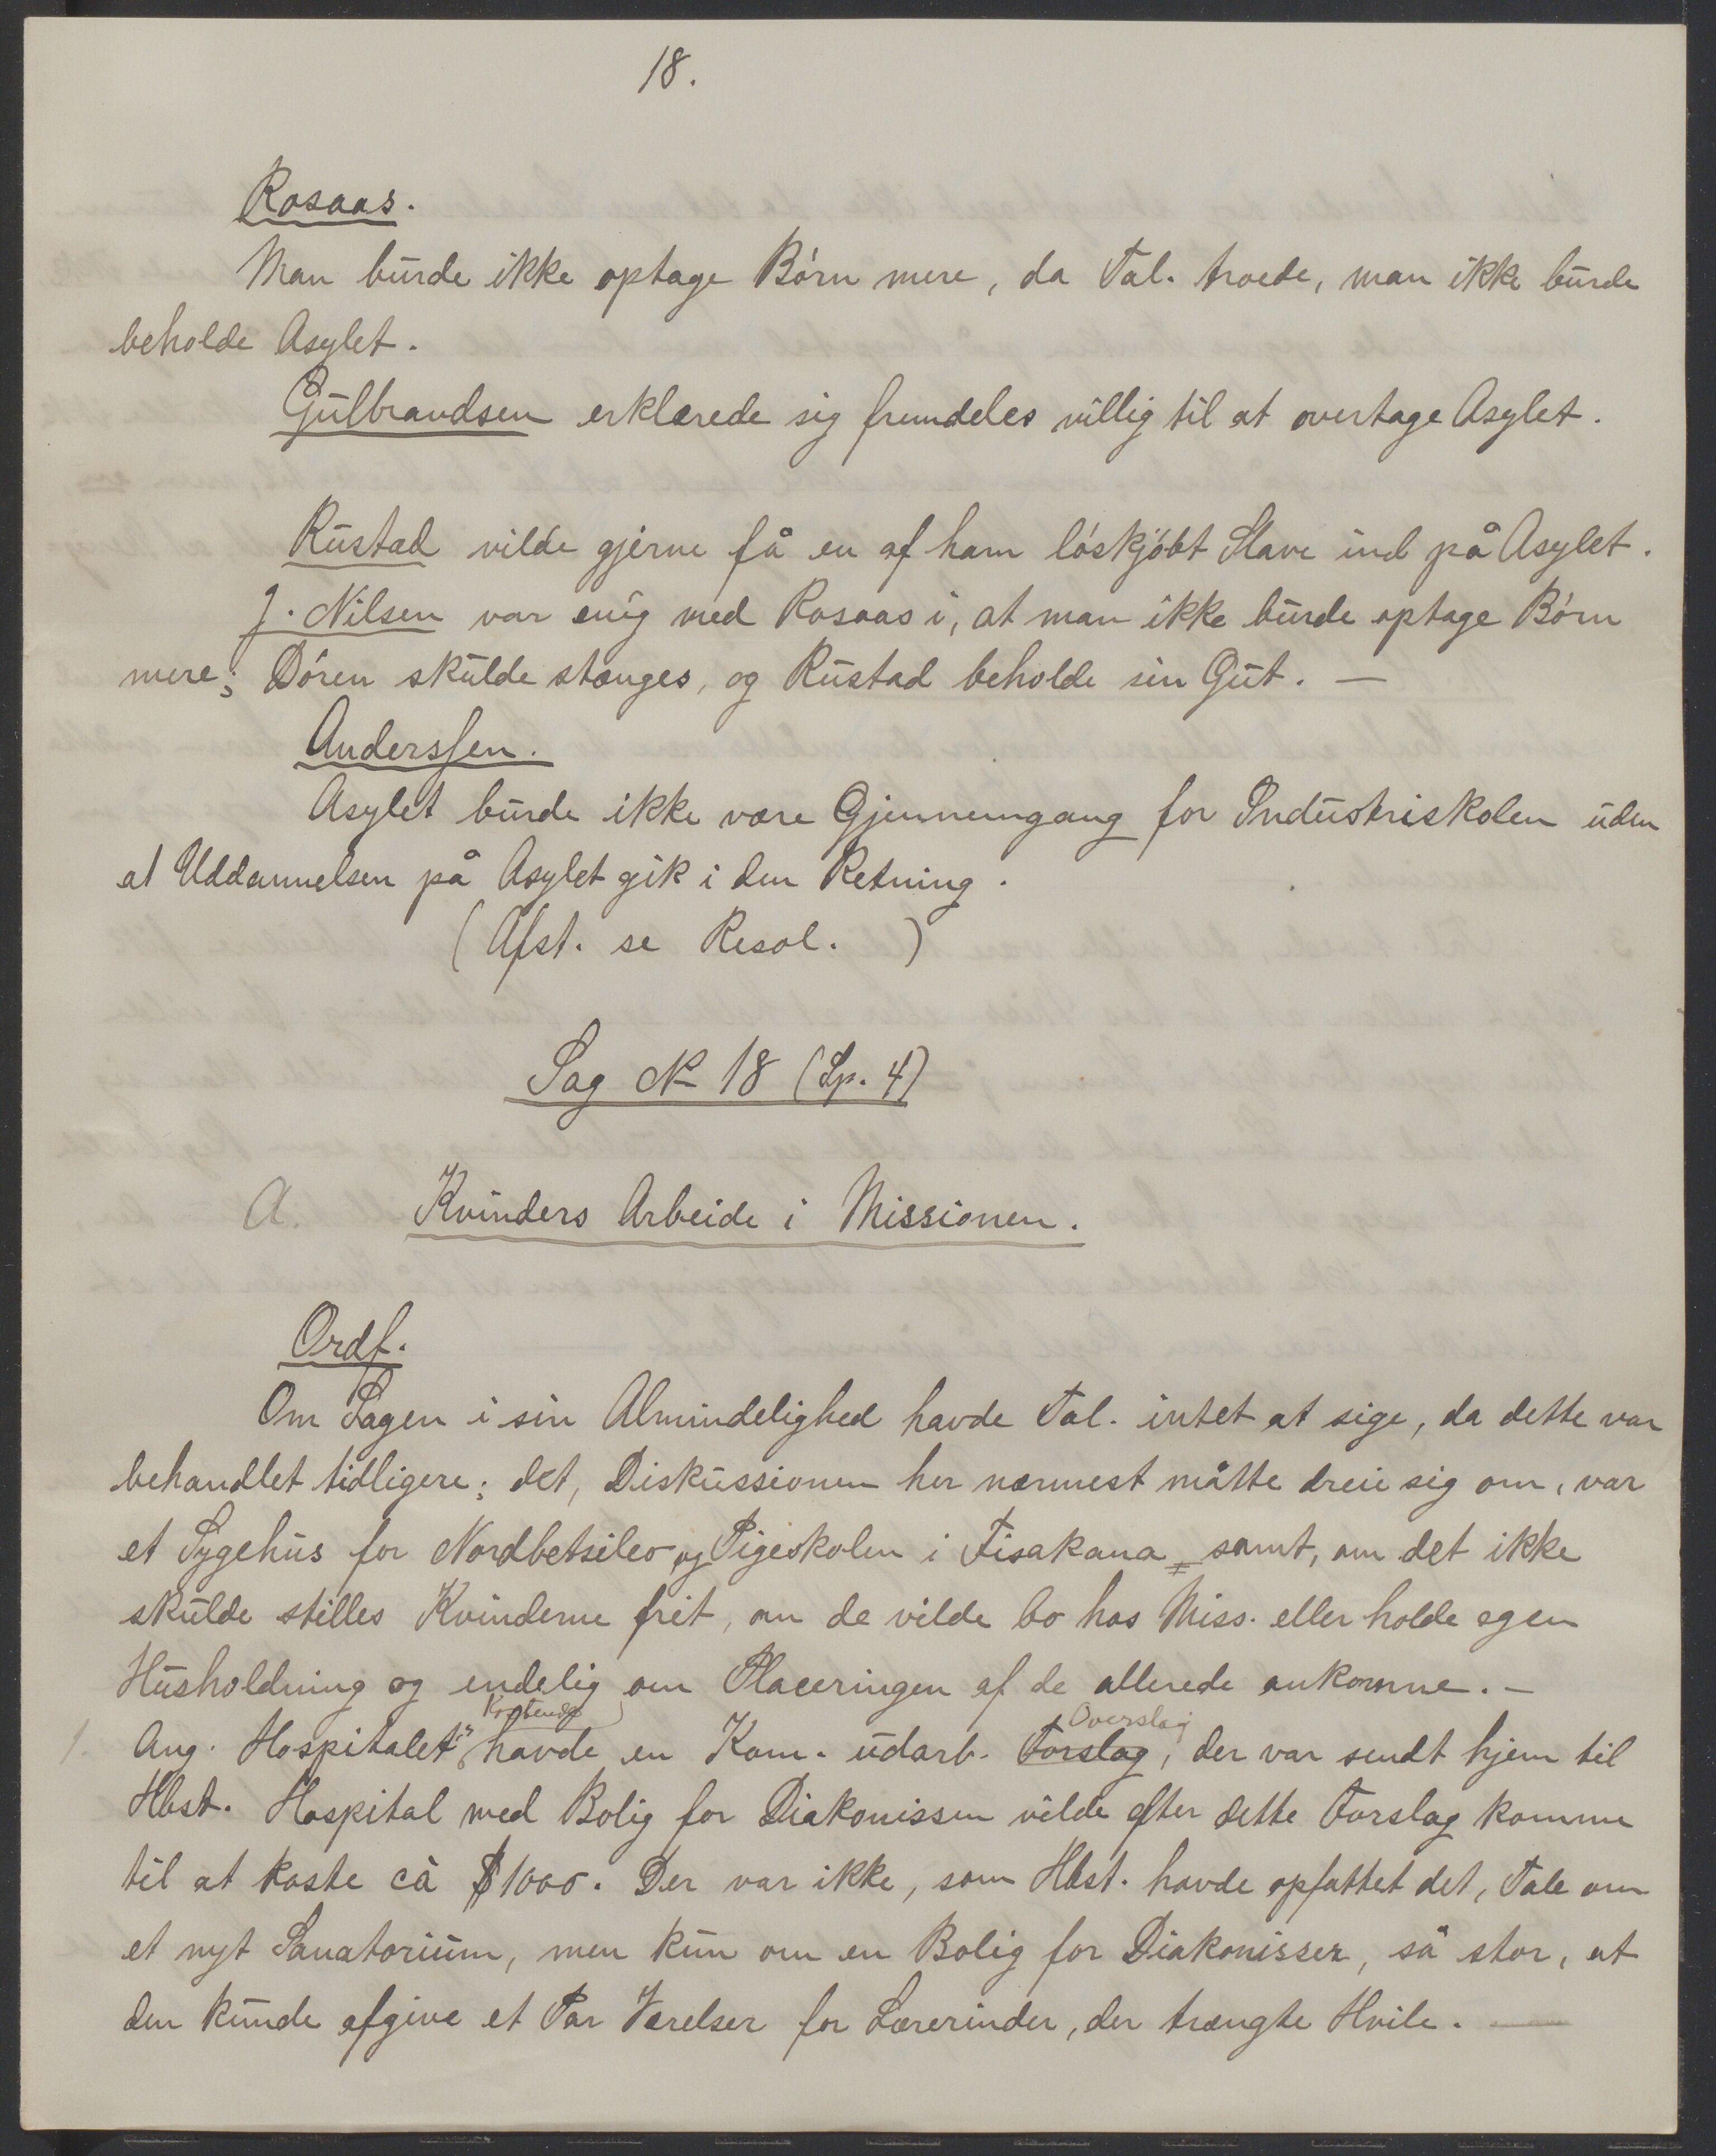 18.
Rosaas.
Man burde ikke optage Börn mere, da Tal. troede, man ikke burde
beholde Asylet.
Gulbrandsen erklærede sig fremdeles villig til at overtage Asylet.
Rustad vilde gjerne få en af ham löskjöbt Slave ind på Asylet.
J. Nilsen var enig med Rosaas i, at man ikke burde optage Börn
mere; Dören skulde stænges, og Rustad beholde sin Gut. —
Anderssen.
Asylet burde ikke være Gjennemgang for Industriskolen uden
at Uddannelsen på Asylet gik i den Retning.
(Afst. se Resol. )
Sag № 18 (Sp. 4)
A. Kvinders Arbeide i Missionen.
Ordf.
Om Sagen i sin Almindelighed havde Tal. intet at sige, da dette var
behandlet tidligere; det, Diskussionen her nærmest måtte dreie sig om, var
et Sygehus for Nordbetsileo og Pigeskolen i Fisakana samt, om det ikke
skulde stilles Kvinderne frit, om de vilde bo hos Miss. eller holde egen
Husholdning og endelig om Placeringen af de allerede ankomne. —
Kostende Overslag
1. Ang. Hospitalet's havde en Kom. udarb. Forslag, der var sendt hjem til
Hbst. Hospital med Bolig for Diakonissen vilde efter dette Forslag komme
til at koste cà $1000. Der var ikke, som Hbst. havde opfattet det, Tale om
et nyt Sanatorium, men kun om en Bolig for Diakonisser, så stor, at
den kunde afgive et Par Værelser for Lærerinder, der trængte Hvile. —